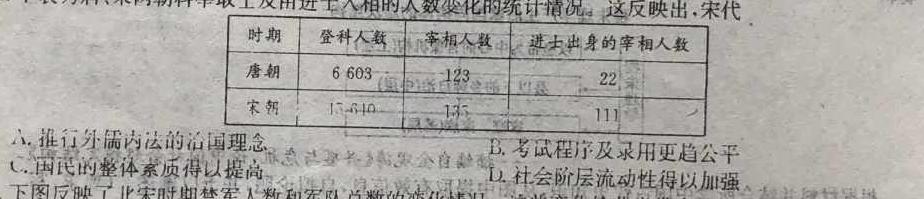 表为唐、宋两朝科举取士及由进士入相的人数变化的统计情况。这反映出,宋代
时期 登科人数 宰相人数 进士出身的宰相人数
唐朝 6 603 123 22
宋朝 135 111
A. 推行外儒内法的治国理念 B. 考试程序及录用更趋公平
C. 国民的整体素质得以提高 D. 社会阶层流动性得以加强
下图反映了北宋时期禁军人数和军队总数的变化情况